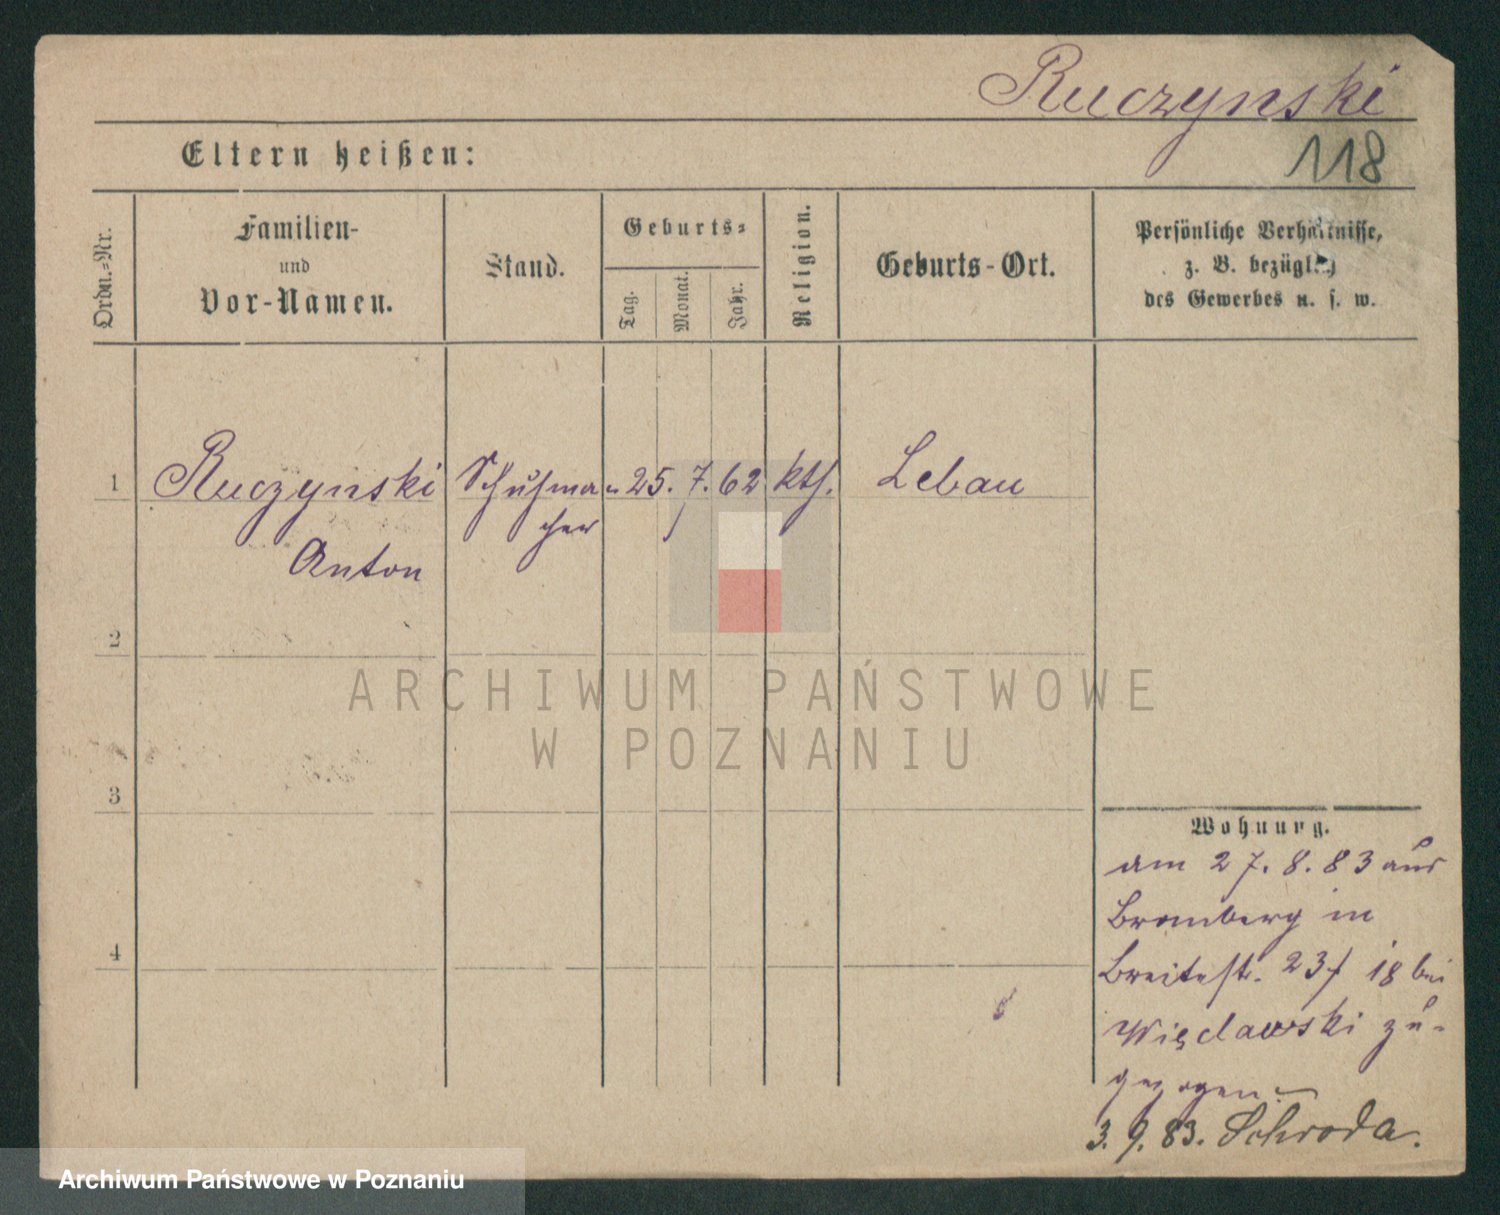 Ruczynski
118
Eltern heißen:
Ordn.=Nr.
Familien-
und
Vor-Namen.
Stand.
Geburts=
Tag.
Monat.
Jahr.
Religion.
Geburts-Ort.
Persönliche Verhältnisse,
z. B. bezüglich
des Gewerbes u. s. w.
1 Ruczynski Schuhma- 25. 7. 62 kth. Lebau
cher
Anton
2
3
4
Wohnung.
am 27. 8. 83 aus
Bromberg in
Breitestr. 23/18 bei
Więclawski zu-
gezogen.
3. 9. 83. Schroda.
ARCHIWUM PAŃSTWOWE
W POZNANIU
Archiwum Państwowe w Poznaniu